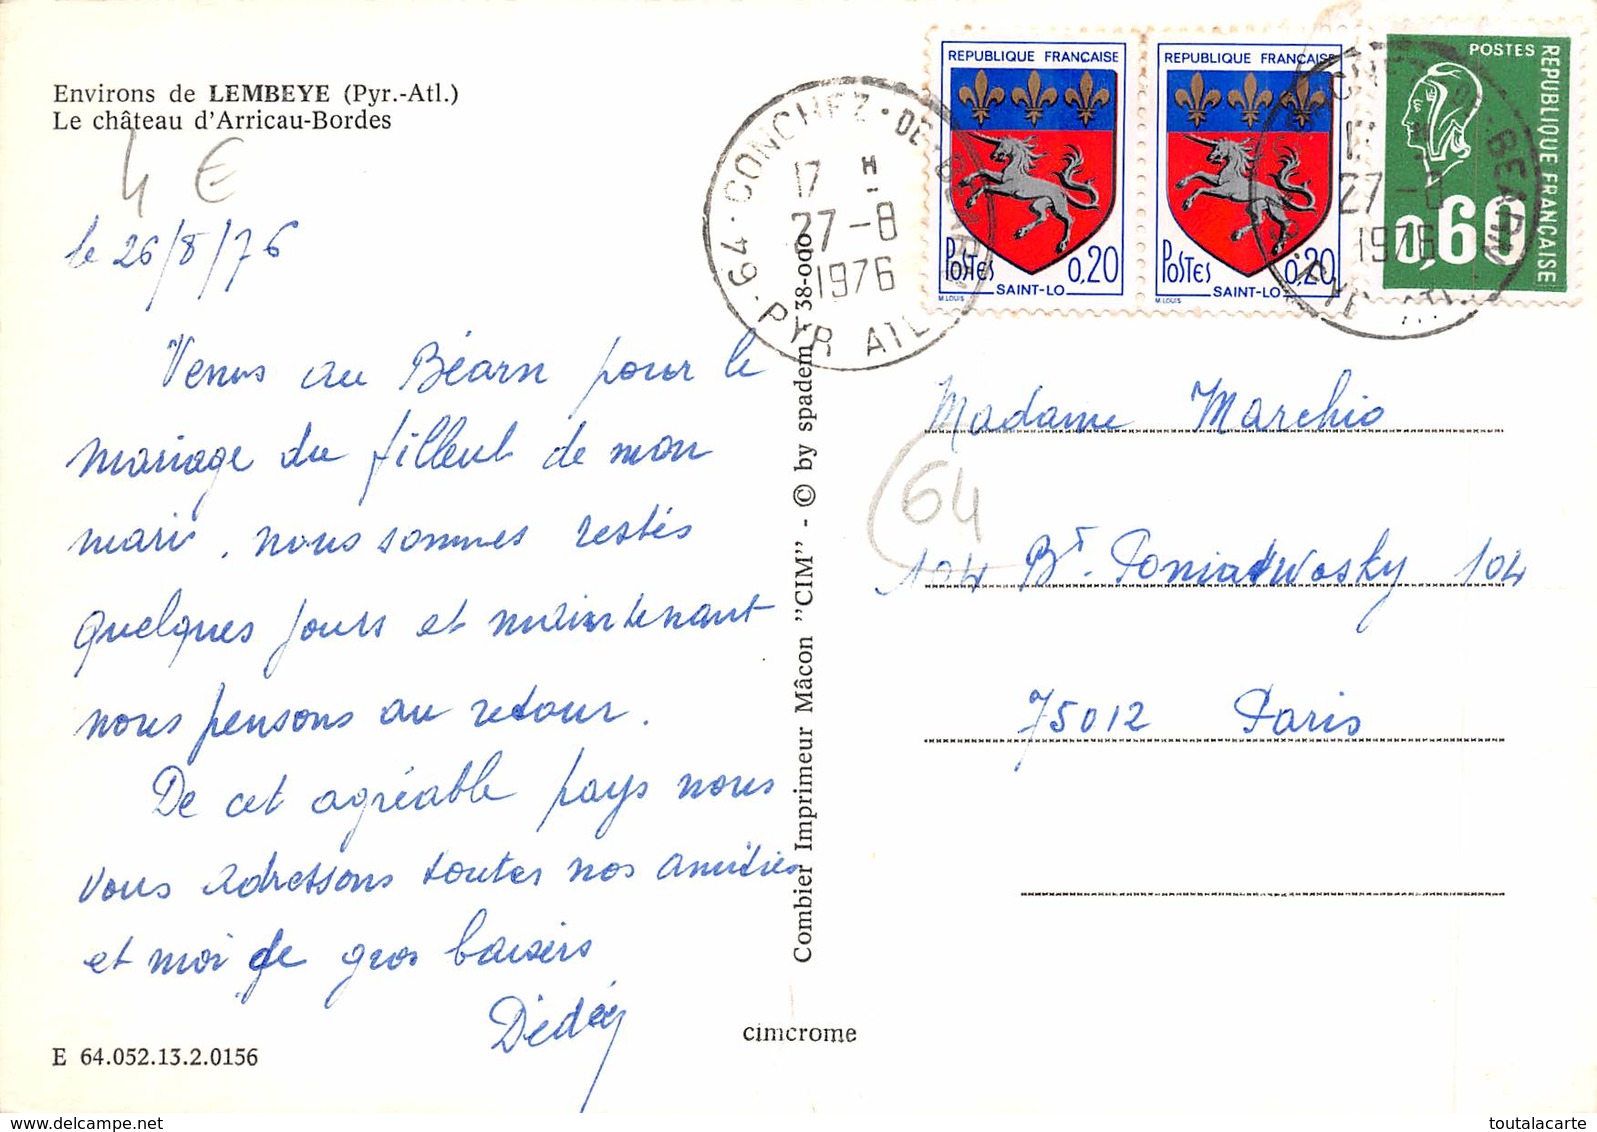 Environs de LEMBEYE (Pyr.-Atl.)
Le château d'Arricau-Bordes
4 €
le 26/8/76
Venus au Béarn pour le
mariage du filleul de mon
mari, nous sommes restés
quelques jours et maintenant
nous pensons au retour.
De cet agréable pays nous
vous adressons toutes nos amitiés
et moi de gros baisers
Dédée
E 64.052.13.2.0156
Combier Imprimeur Mâcon "CIM" - © by spadem T 38-000
cimcrome
64 · CONCHEZ · DE · BEARN · PYR ATL
17 H
27 -8
1976
REPUBLIQUE FRANÇAISE
Postes 0,20
SAINT-LO
M.LOUIS
REPUBLIQUE FRANÇAISE
Postes 0,20
SAINT-LO
M.LOUIS
POSTES
REPUBLIQUE FRANÇAISE
0,60
27 -8
1976
Madame Marchio
64
104 Bt Poniatwosky 104
75012 Paris
www.delcampe.net
toutalacarte